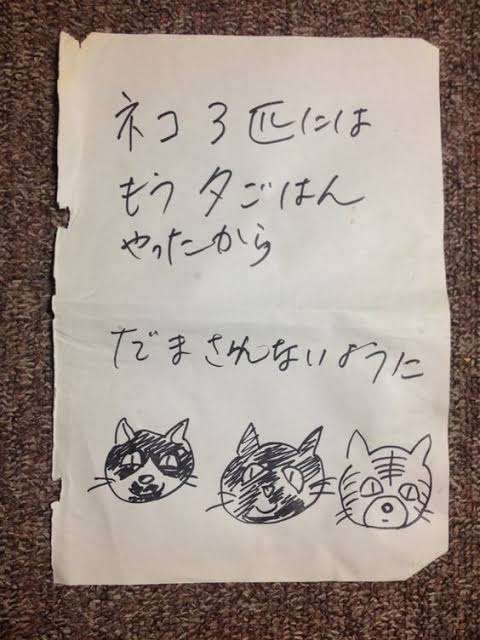 ネコ3匹には
もう夕ごはん
やったから
だまされないように